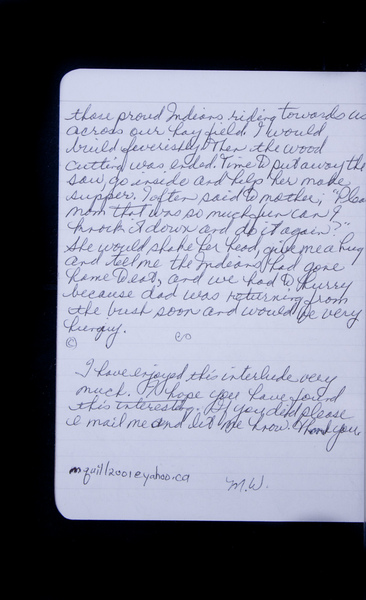 those proud Indians riding towards us
across our hay field. I would
build feverishly. Then the wood
cutting was ended. Time to put away the
saw, go inside and help her make
supper. I often said to mother, "Pleas
mom that was so much fun can I
knock it down and do it again?"
She would shake her head, give me a hug
and tell me the Indians had gone
home to eat, and we had to hurry
because dad was returning from
the bush soon and would be very
hungry.
©
I have enjoyed this interlude very
much. I hope you have found
this interesting. If you did please
e mail me and let me know. Thank you.
mquill2001@yahoo.ca
M.W.